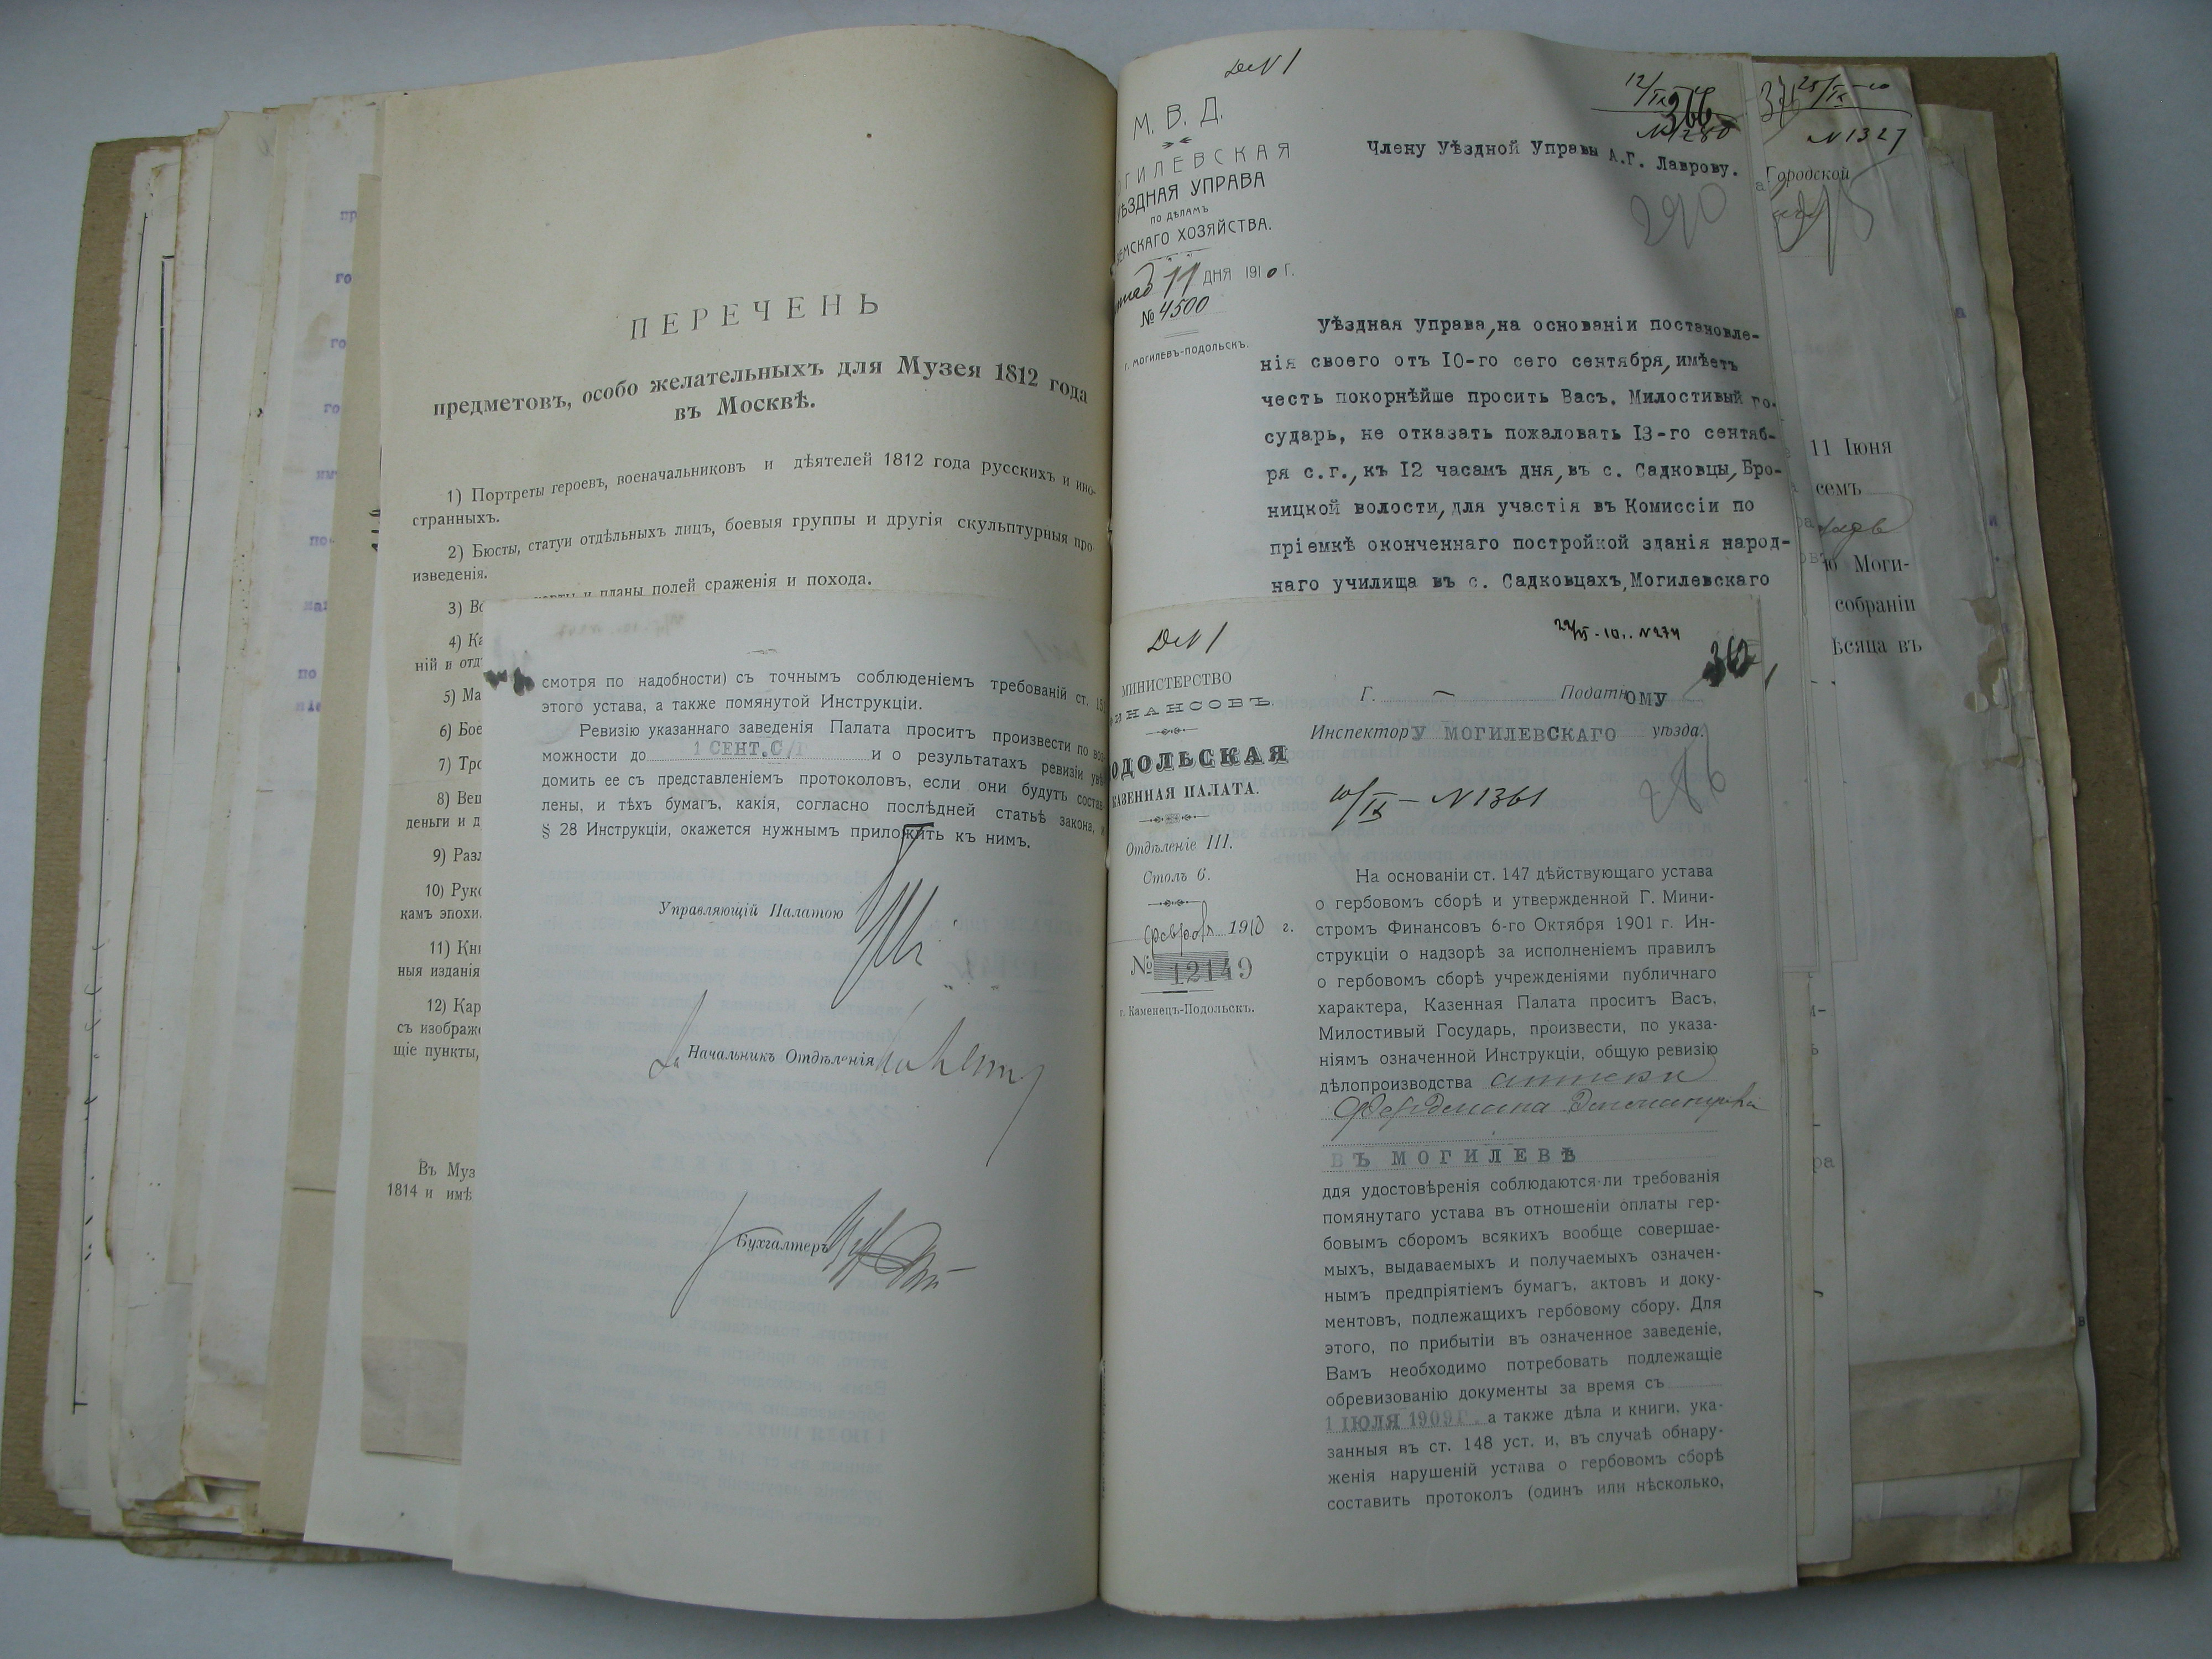 ПЕРЕЧЕНЬ
предметовъ, особо желательныхъ для Музея 1812 года
въ Москвѣ.
1) Портреты героевъ, военачальниковъ и дѣятелей 1812 года русскихъ и ино-
странныхъ.
2) Бюсты, статуи отдѣльныхъ лицъ, боевыя группы и другія скульптурныя про-
изведенія.
3) Во карты и планы полей сраженія и похода.
4) Ка
ній и отд
5) Ма
6) Бое
7) Тро
8) Вещ
деньги и д
9) Разл
10) Руко
камъ эпохи.
11) Кни
ныя изданія
12) Кар
съ изображе
щіе пункты,
Въ Муз
1814 и имѣ
смотря по надобности) съ точнымъ соблюденіемъ требованій ст. 15
этого устава, а также помянутой Инструкціи.
Ревизію указаннаго заведенія Палата проситъ произвести по воз
можности до 1 СЕНТ. С/Г и о результатахъ ревизіи увѣ
домить ее съ представленіемъ протоколовъ, если они будутъ состав
лены, и тѣхъ бумагъ, какія, согласно послѣдней статьѣ закона, и
§ 28 Инструкціи, окажется нужнымъ приложить къ нимъ.
Управляющій Палатою
За Начальникъ Отдѣленія
Бухгалтеръ
М. В. Д.
ОГИЛЕВСКАЯ
УѢЗДНАЯ УПРАВА
ПО ДѢЛАМЪ
ЕМСКАГО ХОЗЯЙСТВА.
11 ДНЯ 1910 Г.
№ 4500
Г. МОГИЛЕВЪ-ПОДОЛЬСКЪ.
366
№ 1280
Члену Уѣздной Управы А.Г. Лаврову.
290
Уѣздная Управа, на основаніи постановле-
нія своего отъ 10-го сего сентября, имѣетъ
честь покорнѣйше просить Васъ, Милостивый Го-
сударь, не отказать пожаловать 13-го сентяб-
ря с.г., къ 12 часамъ дня, въ с. Садковцы, Бро-
ницкой волости, для участія въ Комиссіи по
пріемкѣ оконченнаго постройкой зданія народ-
наго училища въ с. Садковцахъ, Могилевскаго
МИНИСТЕРСТВО
ИНАНСОВЪ.
ОДОЛЬСКАЯ
КАЗЕННАЯ ПАЛАТА.
Отдѣленіе III.
Столъ 6.
февраля 1910 г.
№ 12149
г. Каменецъ-Подольскъ.
362
Г. — Податному
Инспектору МОГИЛЕВСКАГО уѣзда.
10/IX — № 1361
286
На основаніи ст. 147 дѣйствующаго устава
о гербовомъ сборѣ и утвержденной Г. Мини-
стромъ Финансовъ 6-го Октября 1901 г. Ин-
струкціи о надзорѣ за исполненіемъ правилъ
о гербовомъ сборѣ учрежденіями публичнаго
характера, Казенная Палата проситъ Васъ,
Милостивый Государь, произвести, по указа-
ніямъ означенной Инструкціи, общую ревизію
дѣлопроизводства аптеки
ВЪ МОГИЛЕВѢ
для удостовѣренія соблюдаются-ли требованія
помянутаго устава въ отношеніи оплаты гер-
бовымъ сборомъ всякихъ вообще совершае-
мыхъ, выдаваемыхъ и получаемыхъ означен-
нымъ предпріятіемъ бумагъ, актовъ и доку-
ментовъ, подлежащихъ гербовому сбору. Для
этого, по прибытіи въ означенное заведеніе,
Вамъ необходимо потребовать подлежащіе
обревизованію документы за время съ
1 ІЮЛЯ 1909 Г. а также дѣла и книги, ука-
занныя въ ст. 148 уст. и, въ случаѣ обнару-
женія нарушеній устава о гербовомъ сборѣ
составить протоколъ (одинъ или нѣсколько,
№ 1327
Городской
11 Іюня
семъ
ю Моги-
собраніи
ѣсяца въ